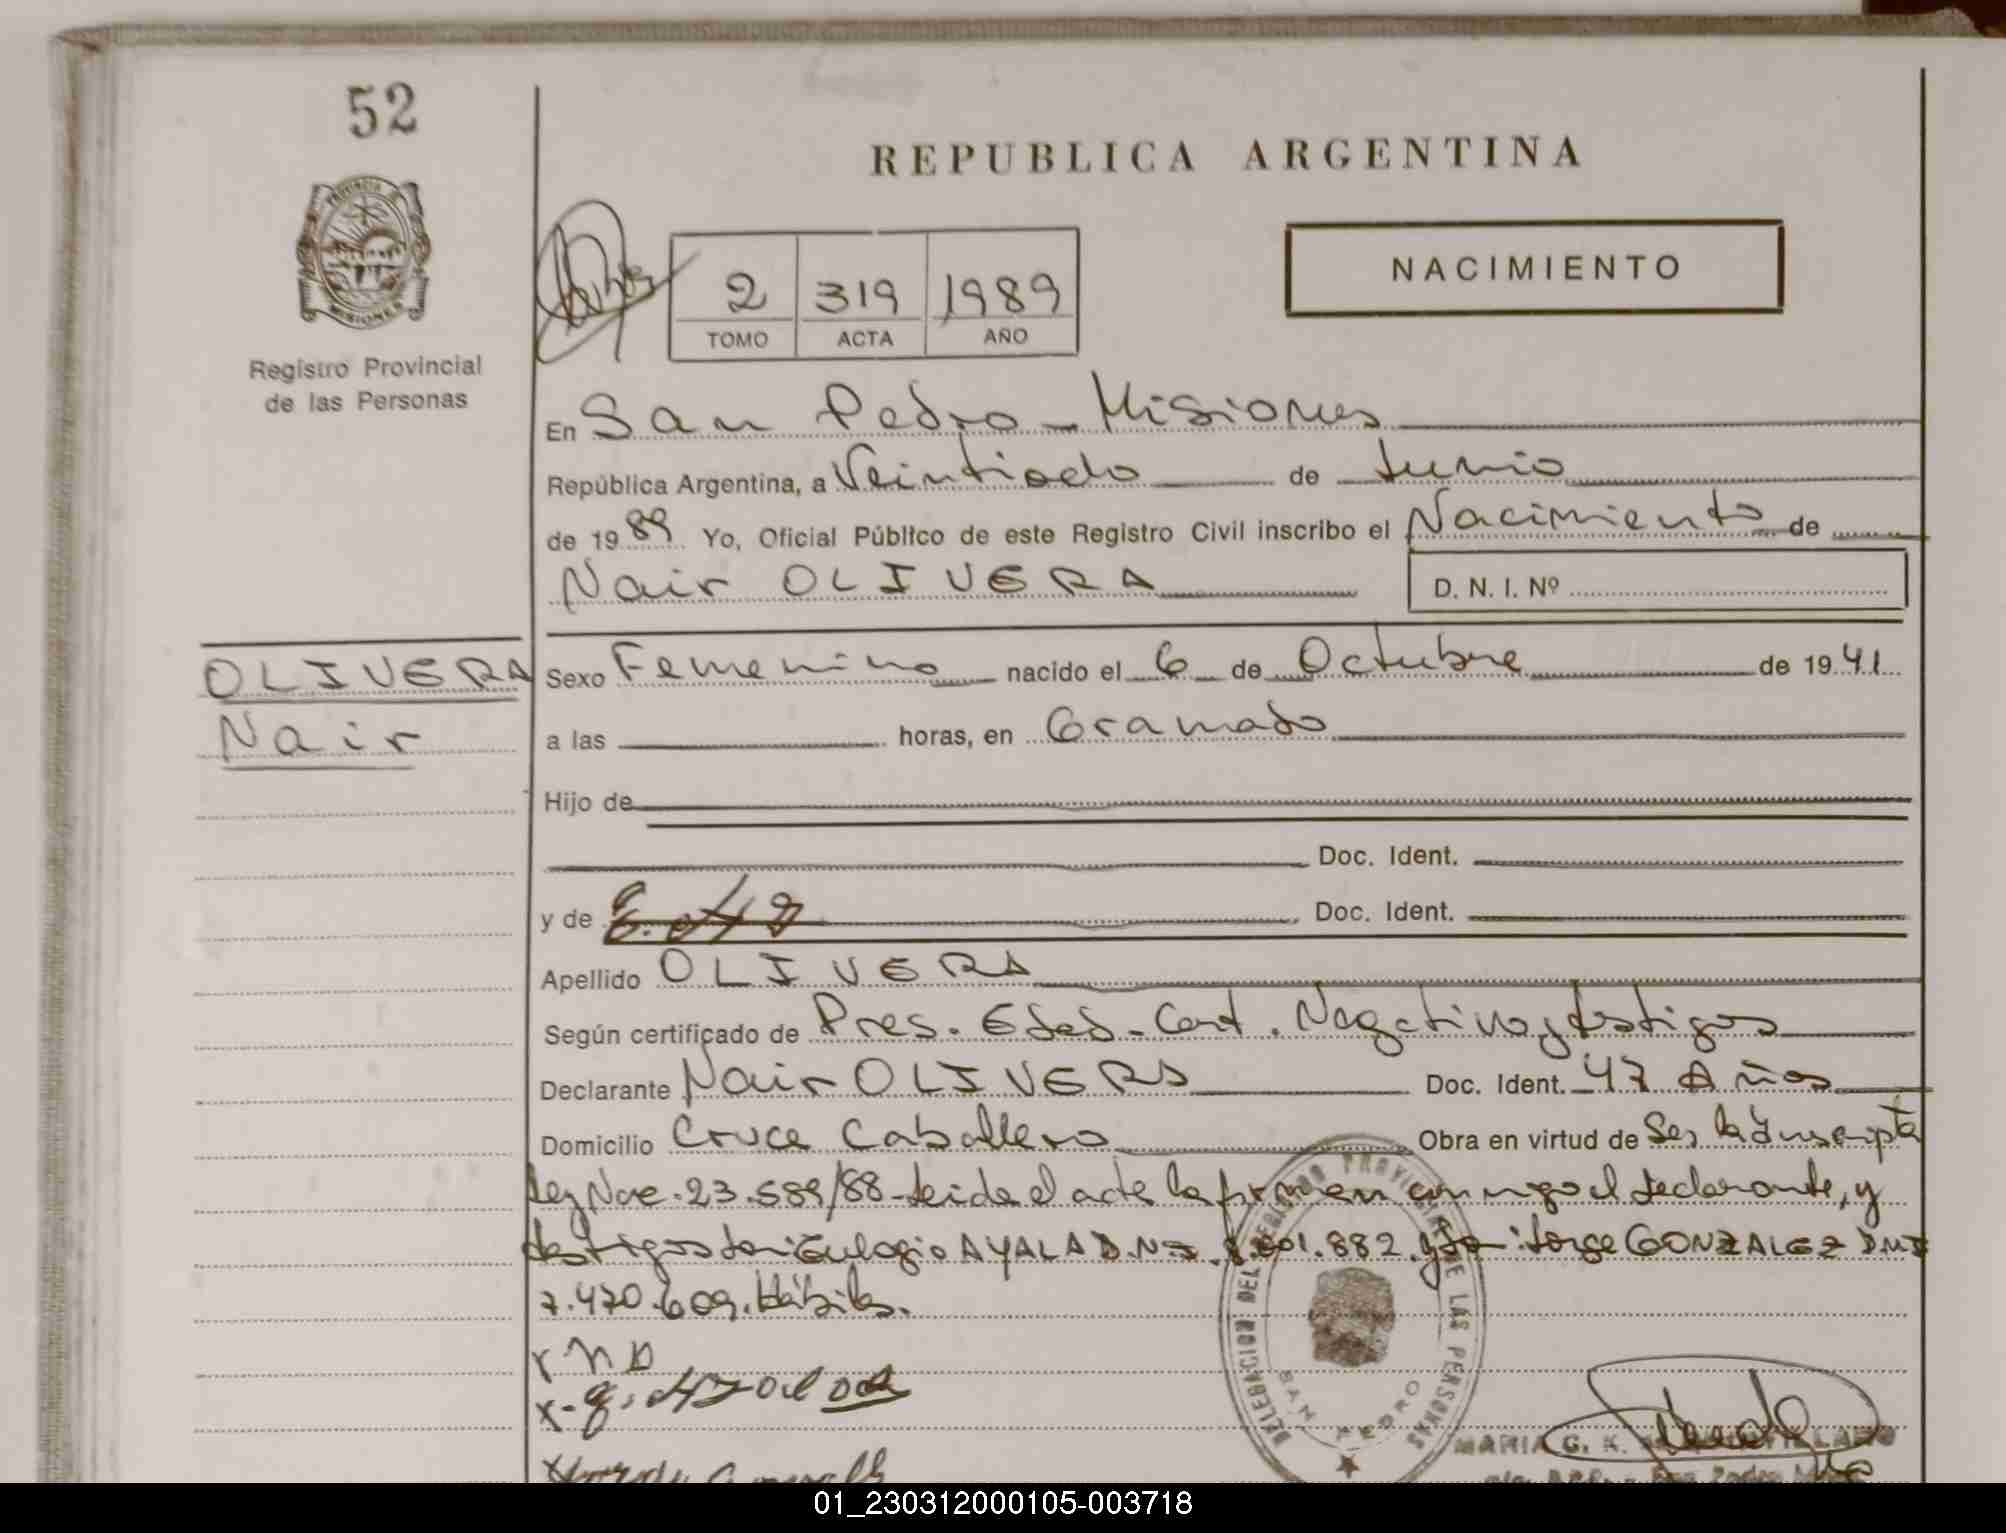 52
REPUBLICA ARGENTINA
PROVINCIA DE
MISIONES
Registro Provincial
de las Personas
2 319 1989
TOMO ACTA AÑO
NACIMIENTO
En San Pedro - Misiones
República Argentina, a Veintiado de Junio
de 1989 Yo, Oficial Público de este Registro Civil inscribo el Nacimiento de
Nair OLIVERA D. N. I. Nº
OLIVERA
Nair
Sexo Femenino nacido el 6 de Octubre de 1941
a las horas, en Gramado
Hijo de
Doc. Ident.
y de Doc. Ident.
Apellido OLIVERA
Según certificado de Pres. Edad - Cert. Negativo y testigos
Declarante Nair OLIVERA Doc. Ident. 47 Años
Domicilio Cruce Caballero Obra en virtud de Ser la Inscripta
Ley Nac. 23.589/88 - leída el acta la firman conmigo el declarante, y
testigos Eulogio AYALA D.N.I. 601.882 y Jorge GONZALEZ D.N.I
7.470.609. Hábiles.
x N O
DELEGACION DEL REGISTRO PROVINCIAL DE LAS PERSONAS
SAN PEDRO
MARIA G. K.
01_230312000105-003718